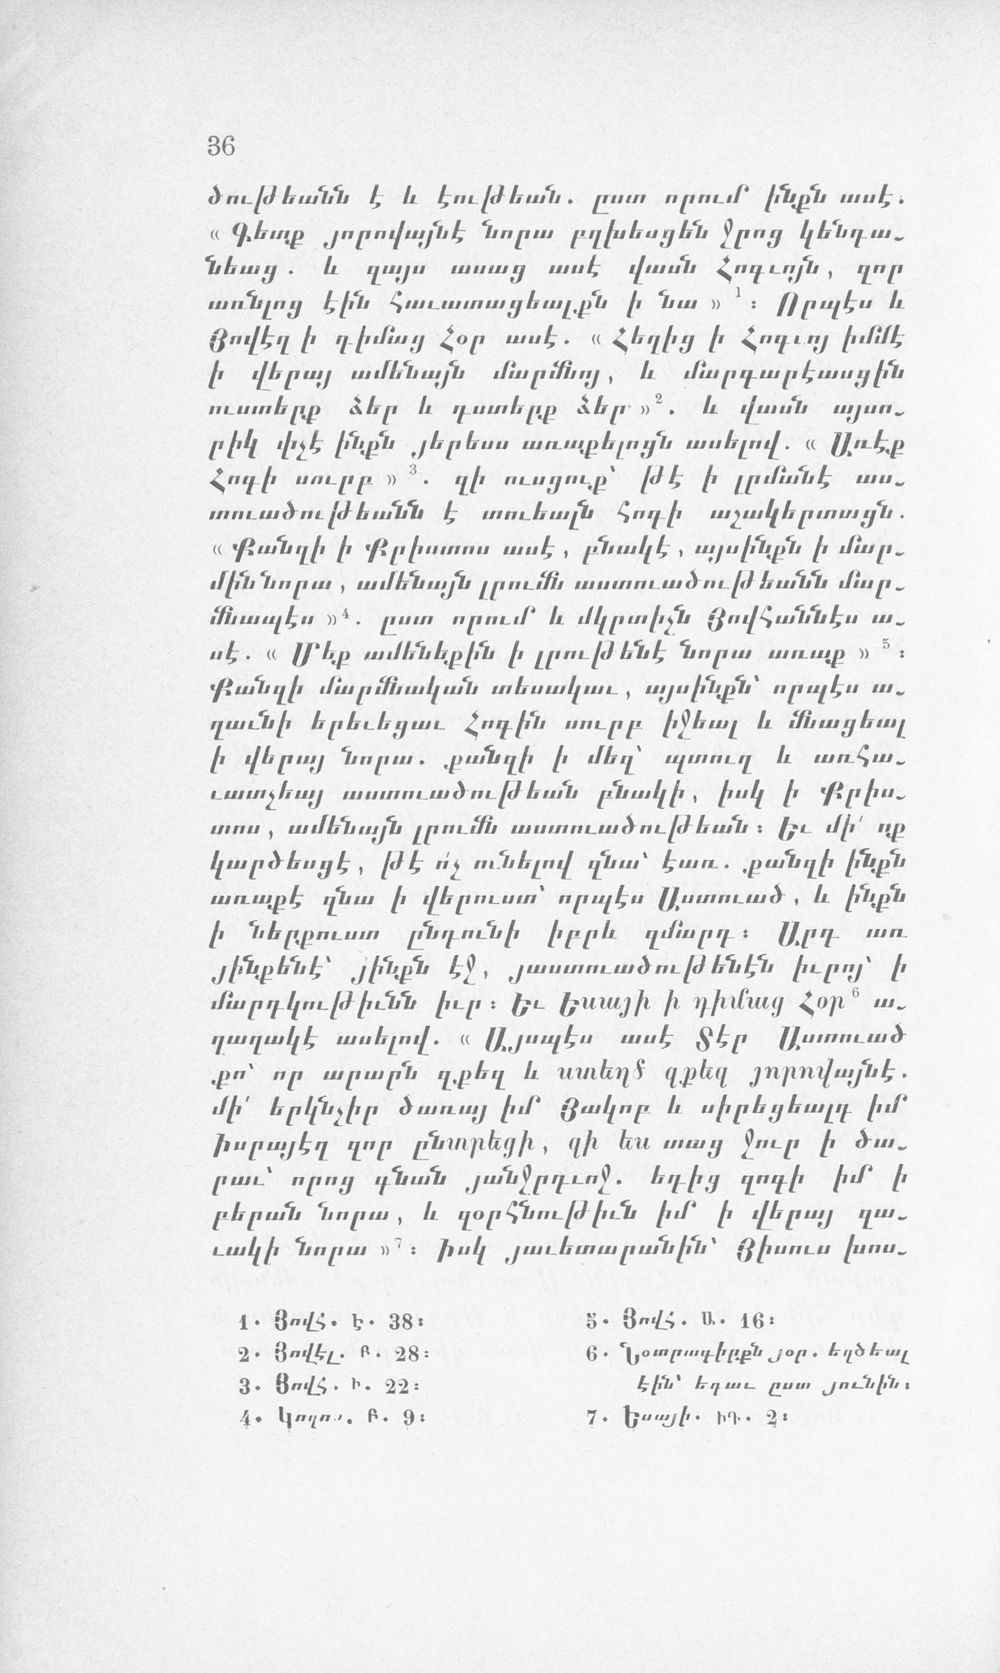 36
ծութեանն է և էութեան. ըստ որում ինքն ասէ.
« Գետք յորովայնէ նորա բղխեսցեն ջրոց կենդա֊
նեաց. և զայս ասաց ասէ վասն Հոգւոյն, զոր
առնլոց էին հաւատացեալքն ի նա » 1 ։ Որպէս և
Յովէղ ի դիմաց Հօր ասէ. « Հեղից ի Հոգւոյ իմմէ
ի վերայ ամենայն մարմնոյ, և մարգարէասցին
ուստերք ձեր և դստերք ձեր »2. և վասն այսո֊
րիկ փչէ ինքն յերեսս առաքելոցն ասելով. « Առէք
Հոգի սուրբ » 3. զի ուսցուք՝ թէ ի լրմանէ աս֊
տուածութեանն է տուեալն հոգի աշակերտացն.
« Քանզի ի Քրիստոս ասէ, բնակէ, այսինքն ի մար֊
մին նորա, ամենայն լրումն աստուածութեանն մար֊
մնապէս »4. ըստ որում և մկրտիչն Յովհաննէս ա֊
սէ. « Մեք ամենեքին ի լրութենէ նորա առաք » 5 ։
Քանզի մարմնական տեսակաւ, այսինքն՝ որպէս ա֊
ղաւնի երեւեցաւ Հոգին սուրբ իջեալ և մնացեալ
ի վերայ նորա. քանզի ի մեզ՝ պտուղ և առհա֊
ւատչեայ աստուածութեան բնակի, իսկ ի Քրիս֊
տոս, ամենայն լրումն աստուածութեան։ Եւ մի՛ ոք
կարծեսցէ, թէ ո՛չ ունելով զնա՝ էառ. քանզի ինքն
առաքէ զնա ի վերուստ՝ որպէս Աստուած, և ինքն
ի ներքուստ ընդունի իբրև զմարդ։ Արդ առ
յինքենէ՝ յինքն էջ, յաստուածութենէն իւրոյ՝ ի
մարդկութիւնն իւր։ Եւ Եսայի ի դիմաց Հօր6 ա֊
ղաղակէ ասելով. « Այսպէս ասէ Տէր Աստուած
քո՝ որ արարն զքեզ և ստեղծ զքեզ յորովայնէ.
մի՛ երկնչիր ծառայ իմ Յակոբ և սիրեցեալդ իմ
Իսրայէղ զոր ընտրեցի, զի ես տաց ջուր ի ծա֊
րաւ՝ որոց գնան յանջրդւոջ. եդից զոգի իմ ի
բերան նորա, և զօրհնութիւն իմ ի վերայ զա֊
ւակի նորա »7։ Իսկ յաւետարանին՝ Յիսուս խոս֊
1. Յովհ. Է. 38։
2. Յովէլ. Բ. 28։
3. Յովհ. Ի. 22։
4. Կողոս. Բ. 9։
5. Յովհ. Ա. 16։
6. Նօտրագիրքն յօր. եղծեալ
էին՝ եդաւ ըստ յունին։
7. Եսայի. ԽԴ. 2։